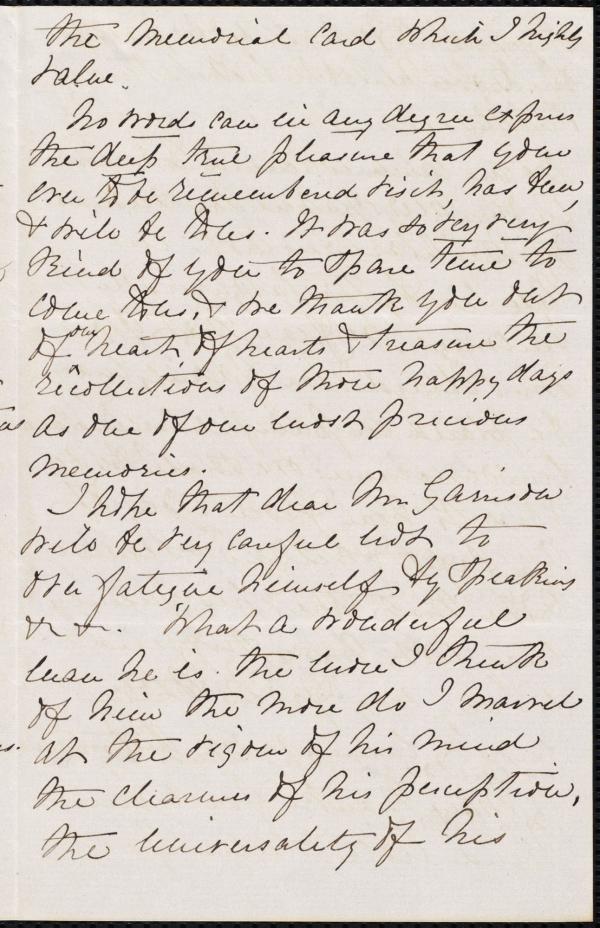 the Memorial Card which I highly
value.
No words can in any degree express
the deep true pleasure that your
ever to be remembered visit, has been,
& will be to us. It was so very very
kind of you to spare time to
come to us, & we thank you out
of our heart of hearts & treasure the
recollections of those happy days
as one of our most precious
memories.
I hope that dear Mr Garrison
will be very careful not to
over fatigue himself by speaking
&c &c. What a wonderful
man he is. the more I think
of him the more do I marvel
at the vigour of his mind
the clearness of his perception,
the universality of his